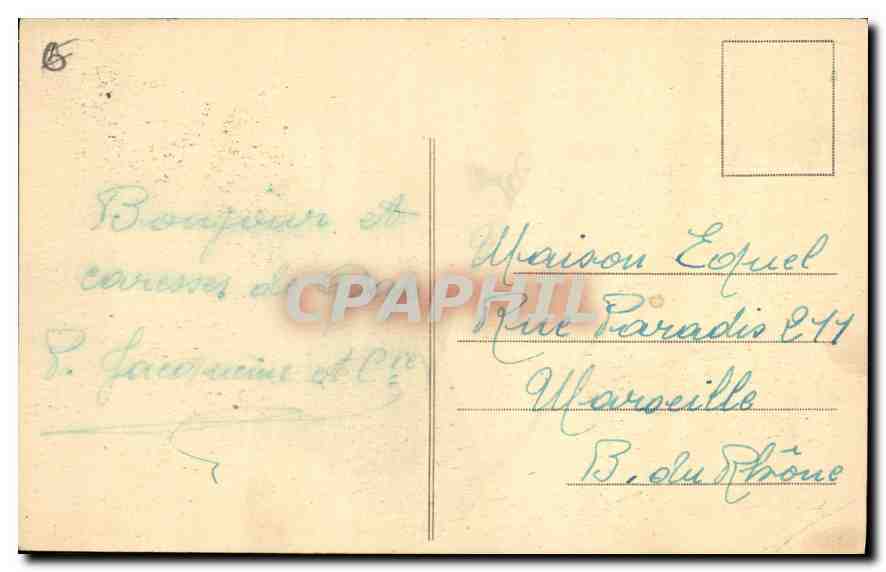 Bonjour et
caresses de
P. Jacquème et Cie
CPAPHIL
Maison Equel
Rue Paradis 211
Marseille
B. du Rhône